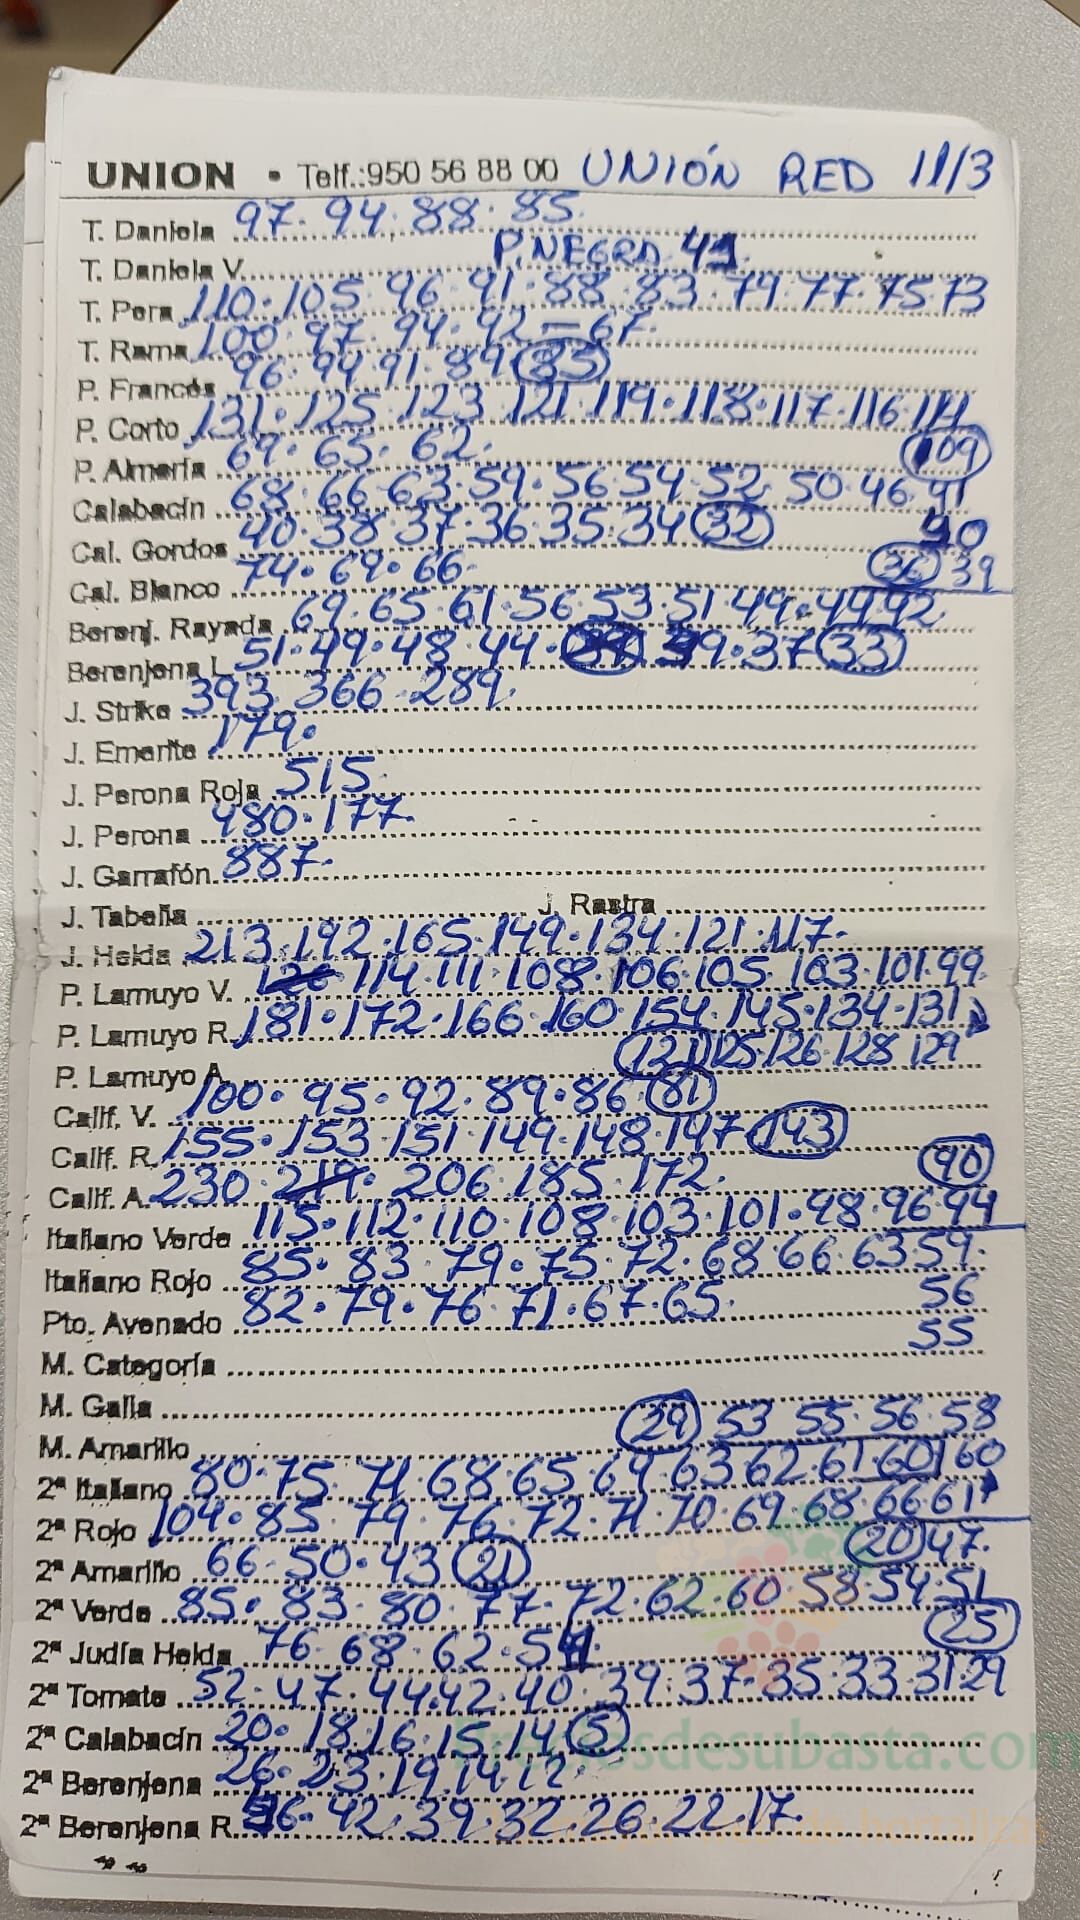 UNION • Telf.:950 56 88 00 UNIÓN RED 11/3
T. Daniela 97. 94. 88. 85.
T. Daniela V. P. NEGRA 41
T. Pera 110. 105. 96. 91. 88. 83. 79. 77. 75 73
T. Rama 100. 97. 94. 92 – 67.
P. Francés 96. 94. 91. 89 (85)
P. Corto 131. 125. 123. 121. 119. 118. 117. 116. 114
(109)
P. Almería 69. 65. 62.
Calabacín 68. 66. 63. 59. 56. 54. 52. 50. 46. 41
40
Cal. Gordos 40. 38. 37. 36. 35. 34 (32)
(36) 39
Cal. Blanco 74. 69. 66.
Berenj. Rayada 69. 65. 61. 56. 53. 51. 49. 44 42.
Berenjena L. 51. 49. 48. 44. 39. 37 (33)
J. Strike 393. 366. 289.
J. Emerite 179.
J. Perona Roja 515.
J. Perona 480. 177.
J. Garrafón 887.
J. Tabella J. Rastra
J. Helda 213. 192. 165. 149. 134. 121. 117.
P. Lamuyo V. 114. 111. 108. 106. 105. 103. 101. 99.
P. Lamuyo R. 181. 172. 166. 160. 154. 145. 134. 131
(121) 125. 126. 128 129
P. Lamuyo A.
Calif. V. 100. 95. 92. 89. 86. (81)
Calif. R. 155. 153. 151. 149. 148. 147 (143)
(90)
Calif. A. 230. 219. 206. 185. 172.
Italiano Verde 115. 112. 110. 108. 103. 101. 98. 96. 94
Italiano Rojo 85. 83. 79. 75. 72. 68. 66. 63. 59.
56
Pto. Avenado 82. 79. 76. 71. 67. 65.
55
M. Categoría
M. Galia
(29) 53 55. 56. 58
M. Amarillo
2ª Italiano 80. 75. 71. 68. 65. 64. 63 62. 61. 60 60
2ª Rojo 104. 85. 79. 76. 72. 71. 70. 69. 68. 66 61
(20) 47.
2ª Amarillo 66. 50. 43 (21)
2ª Verde 85. 83. 80. 77. 72. 62. 60. 58. 54. 51
(25)
2ª Judía Helda 76. 68. 62. 54.
2ª Tomate 52. 47. 44. 42. 40. 39. 37. 35. 33. 31. 29
2ª Calabacín 20. 18. 16. 15. 14. (5)
Preciosdesubasta.com
2ª Berenjena 26. 23. 19. 14. 12.
2ª Berenjena R. 42. 39. 32. 26. 22. 17.
de hortalizas